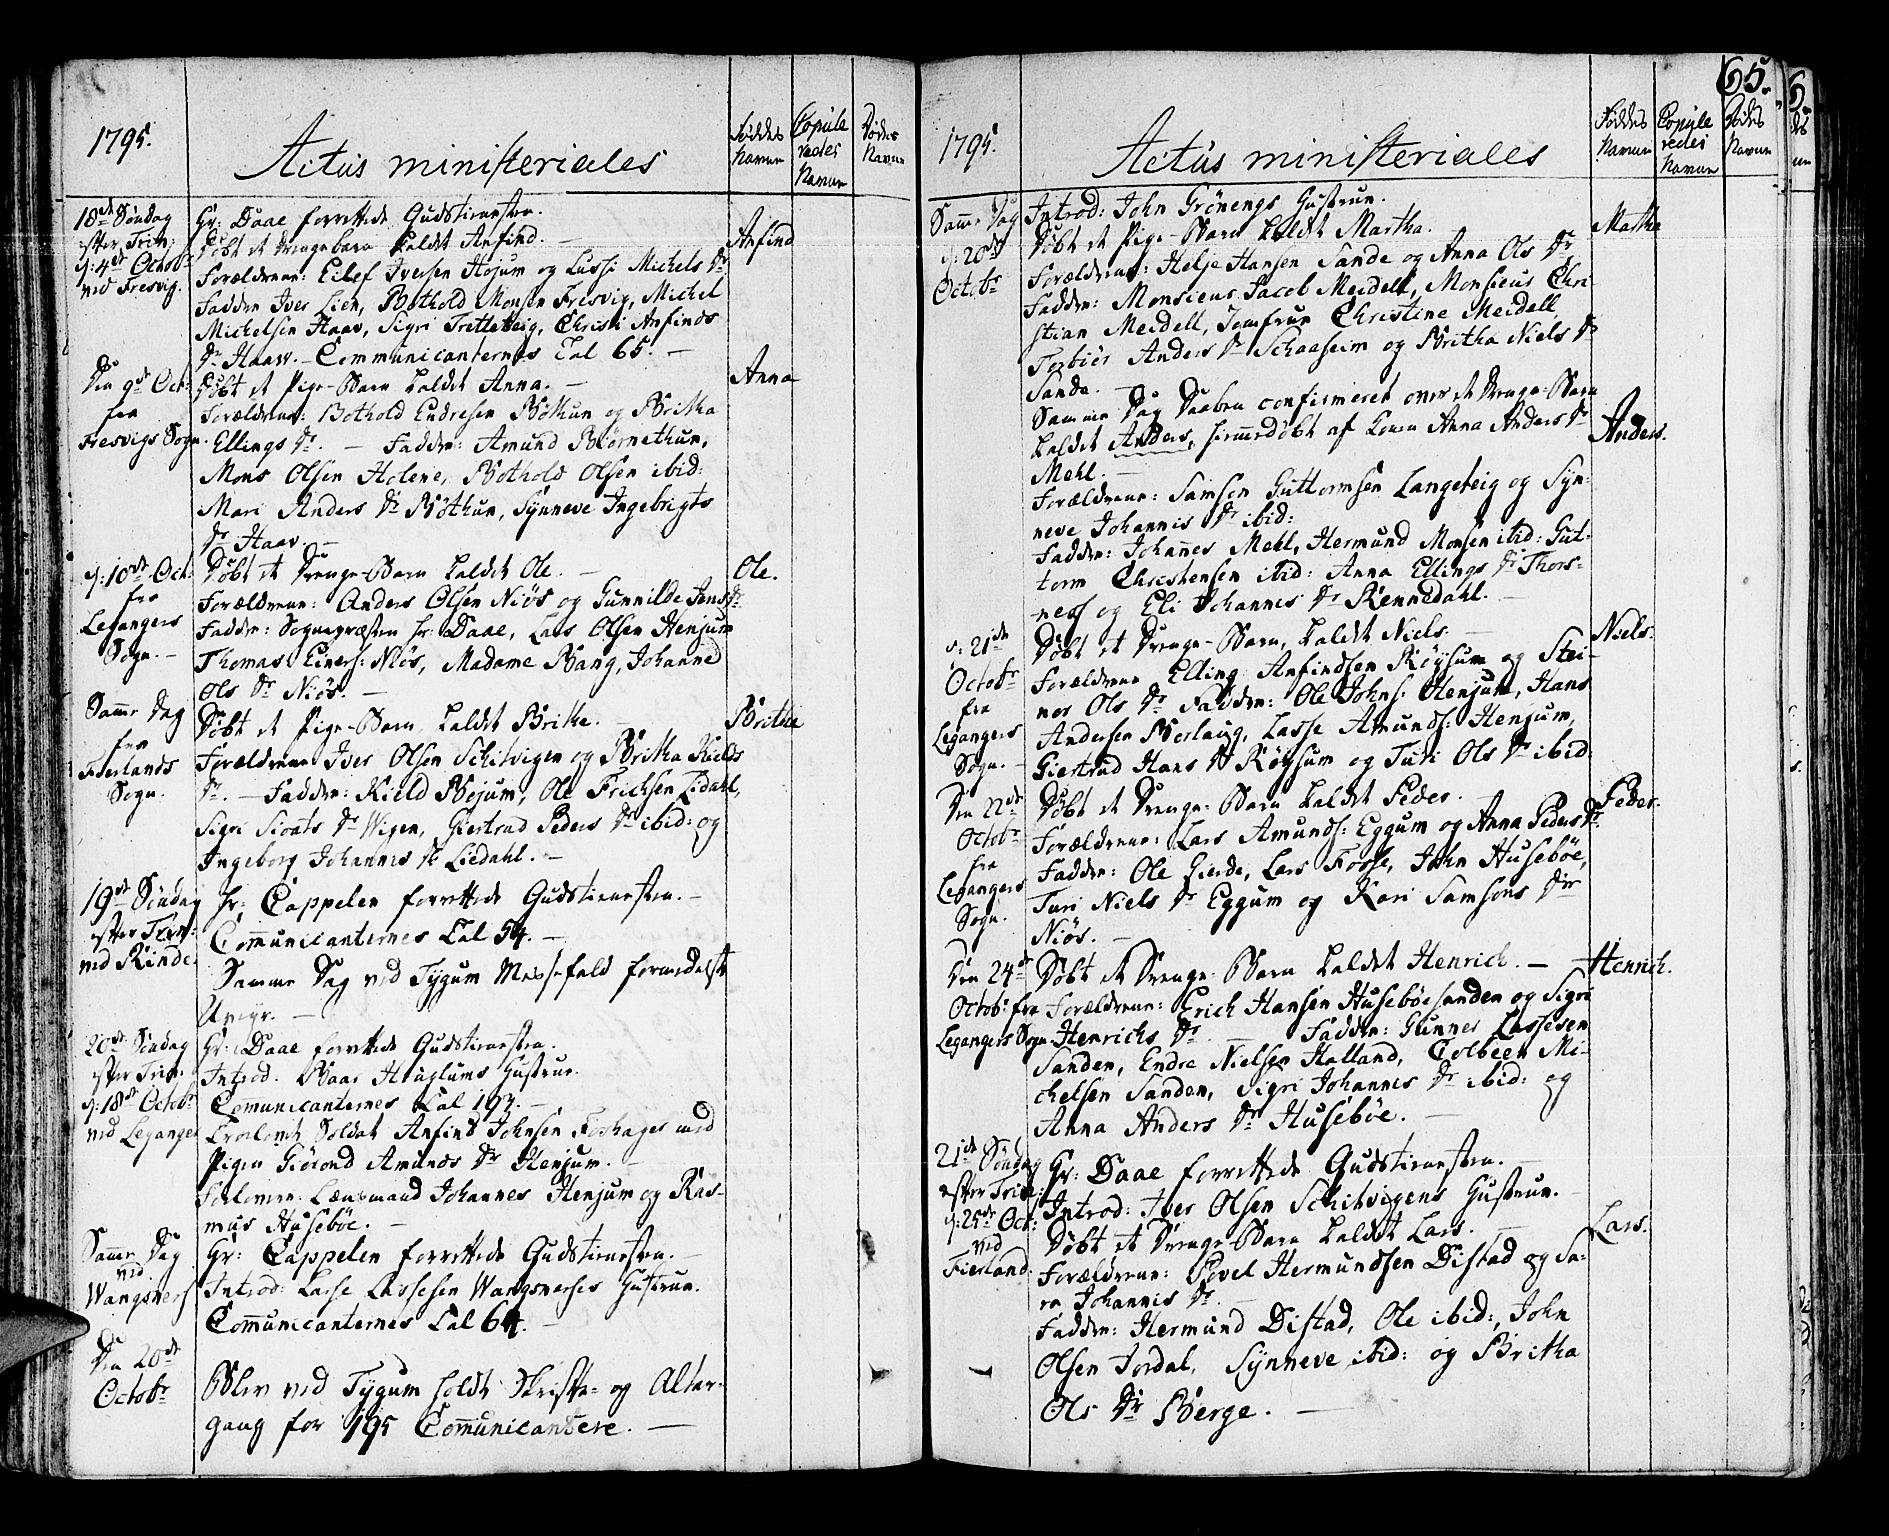 1795.
Actus ministeriales
Føddes Navne
Copuleredes Navne
Dødes Navne
18de Søndag
efter Trin:
d: 4de Octobr
ved Fresvig.
Hr: Daae forrettede Gudstienesten.
Døbt et Drengebarn kaldet Anfind. —
Anfind
Forældrene: Eilef Iversen Højum og Lussi Michels Dr
Faddere Iver Lien, Bothold Monsen Fresvig, Michel
Michelsen Haav, Sigri Tretteteig, Christi Anfinds
Dr Haav. — Communicanternes Tal 65. —
Den 9de Oct:
fra
Fresvigs Sogn.
Døbt et Pige-Barn kaldet Anna. —
Anna
Forældrene: Bothold Endresen Bøthun og Britha
Ellings Dr. — Faddere: Amund Børnethun,
Mons Olsen Holene, Bothold Olsen ibid:
Mari Anders Dr Bøthun, Synneve Ingebrigts
Dr Haav. —
d: 10de Oct:
fra
Legangers
Sogn. —
Døbt et Drenge-Barn kaldet Ole. —
Ole.
Forældrene: Anders Olsen Niøs og Gunnilde Jens Dr
Faddere: Sognepræsten hr: Daae, Lars Olsen Henjum
Thomas Einers: Niøs, Madame Bang, Johanne
Ols Dr Niøs. —
Samme Dag
fra
Fierlands
Sogn.
Døbt et Pige-Barn, kaldet Brithe. —
Britha
Forældrene Iver Olsen Schitvigen og Britha Kields
Dr. — Faddere: Kield Bøjum, Ole Erichsen Lidahl,
Sigri Sioats Dr Wigen, Giertrud Peders Dr ibid: og
Ingeborg Johannis Dr Liedahl. —
19de Søndag
efter Trin:
ved Rinde
Hr: Cappelen forrettede Gudstienesten. —
Communicanternes Tal 54. —
Samme Dag ved Tygum Messefald formedelst
Uveyr. —
20de Søndag
efter Trin:
d: 18de Octobr
ved Leganger
Hr: Daae forrettede Gudstienesten.
Introd: Baar Huglums Hustrue.
Comunicanternes Tal 193. —
Trolovet Soldat Anfind Johnsen Foshages med
Pigen Giørond Amunds Dr Henjum. —
Forlovere: Lænsmand Johannes Henjum og Ras-
mus Husebøe. —
Samme Dag
ved
Wangsnes
Hr: Cappelen forrettede Gudstienesten. —
Introd: Lasse Lassesen Wangsneses Hustrue.
Communicanternes Tal 64. —
Den 20de
Octobr
Blev ved Tygum holdt Skrifte- og Alter-
gang for 195 Communicantere. —
65.
1795.
Actus ministeriales
Føddes Navne
Copuleredes Navne
Dødes Navne
Samme Dag
Introd: John Grønengs Hustrue.
d: 20de
Octobr
Døbt et Pige-Barn kaldet Martha.
Martha
Forældrene: Helje Hansen Sande og Anna Ols Dr
Faddere: Monsieur Jacob Meidell, Monsieur Chri-
stian Meidell, Jomfrue Christine Meidell,
Torbiør Anders Dr Schaaseim og Britha Niels Dr
Sande. —
Samme Dag Daaben confirmeret over et Drenge-Barn
kaldet Anders, hiemmedøbt af Konen Anna Anders Dr
Anders.
Mehl. —
Forældrene: Samson Guttormsen Langeteig og Syn-
neve Johannis Dr ibid:
Faddere: Johannes Mehl, Hermund Monsen ibid: Gut-
torm Christensen ibid: Anna Ellings Dr Thors-
ness og Eli Johannis Dr Rennedahl. —
d: 21de
Octobr
fra
Legangers
Sogn. —
Døbt et Drenge-Barn, kaldet Niels. —
Niels.
Forældrene Elling Anfindsen Røysum og Stei-
nor Ols Dr Faddere: Ole Johns: Henjum, Hans
Andersen Berlaug, Lasse Amunds: Henjum,
Giertrud Hans Dr Røysum og Turi Ols Dr ibid:
Den 22de
Octobr
fra
Legangers
Sogn.
Døbt et Drenge-Barn kaldet Peder. —
Peder.
Forældrene: Lars Amunds: Eggum og Anna Peders Dr
Faddere: Ole Gierde, Lars Fosse, John Husebøe,
Turi Niels Dr Eggum og Kari Samsons Dr
Niøs. —
Den 24de
Octobr fra
Legangers Sogn
Døbt et Drenge-Barn kaldet Henrich. —
Henrich.
Forældrene: Erich Hansen Husebøesanden og Sigri
Henrichs Dr. — Faddere: Gunner Lassesen
Sanden, Endre Nielsen Halland, Colbeen Mi-
chelsen Sanden, Sigri Johannis Dr ibid: og
Anna Anders Dr Husebøe. —
21de Søndag
efter Trin:
d: 25de Oct:
ved
Fierland.
Hr: Daae forrettede Gudstienesten. —
Introd: Iver Olsen Schitvigens Hustrue. —
Døbt et Drenge-Barn kaldet Lars. —
Lars.
Forældrene: Povel Hermundsen Distad og Sa-
ra Johannis Dr. —
Faddere: Hermund Distad, Ole ibid:, John
Olsen Jordal, Synneve ibid: og Britha
Ols Dr Berge. —